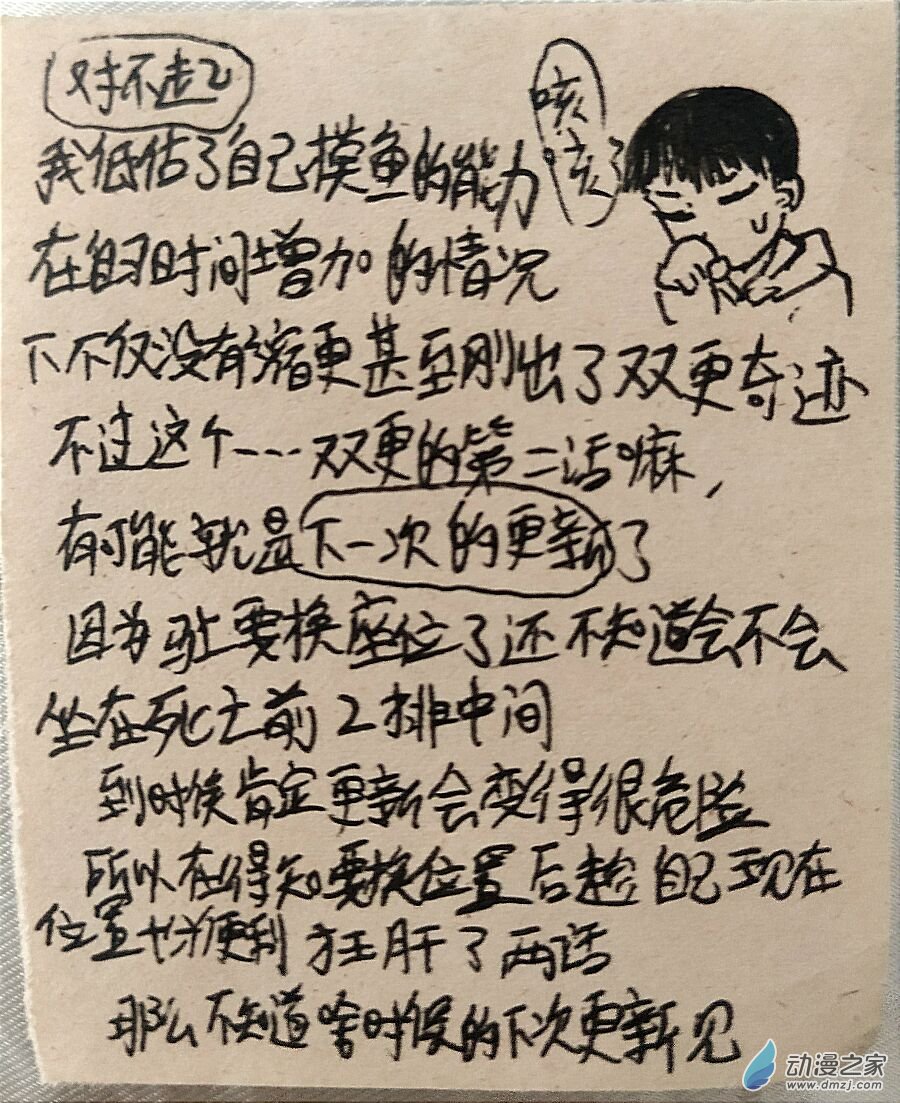 对不起
咳咳
我低估了自己摸鱼的能力
在自习时间增加的情况
下不仅没有缩更甚至刚出了双更奇迹
不过这个----双更的第二话嘛,
有可能就是下一次的更新了
因为马上要换座位了还不知道会不会
坐在死亡前2排中间
到时候肯定更新会变得很危险
所以在得知要换位置后趁自己现在
位置 便利 狂肝了两话
那么不知道啥时候的下次更新见
动漫之家
www.dmzj.com